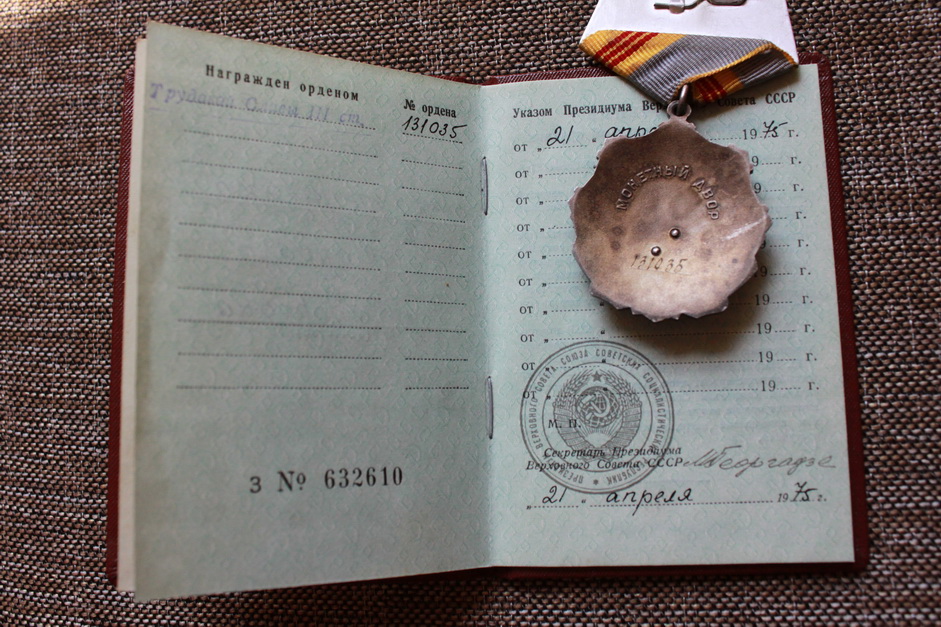 Награжден орденом
Трудовой Славы III ст.
№ ордена
131035
З № 632610
Указом Президиума Верховного Совета СССР
от „ 21 “ апреля 1975 г.
от „ 19 г.
от „ 19 г.
от „ 19 г.
от „ 19 г.
от „ 19 г.
от „ “ 19 г.
от „ “ 19 г.
от „ “ 19 г.
от „ 19 г.
МОНЕТНЫЙ ДВОР
131035
ПРЕЗИДИУМ ВЕРХОВНОГО СОВЕТА СОЮЗА СОВЕТСКИХ СОЦИАЛИСТИЧЕСКИХ РЕСПУБЛИК
М. П.
Секретарь Президиума
Верховного Совета СССР МГеоргадзе
„ 21 “ апреля 1975 г.